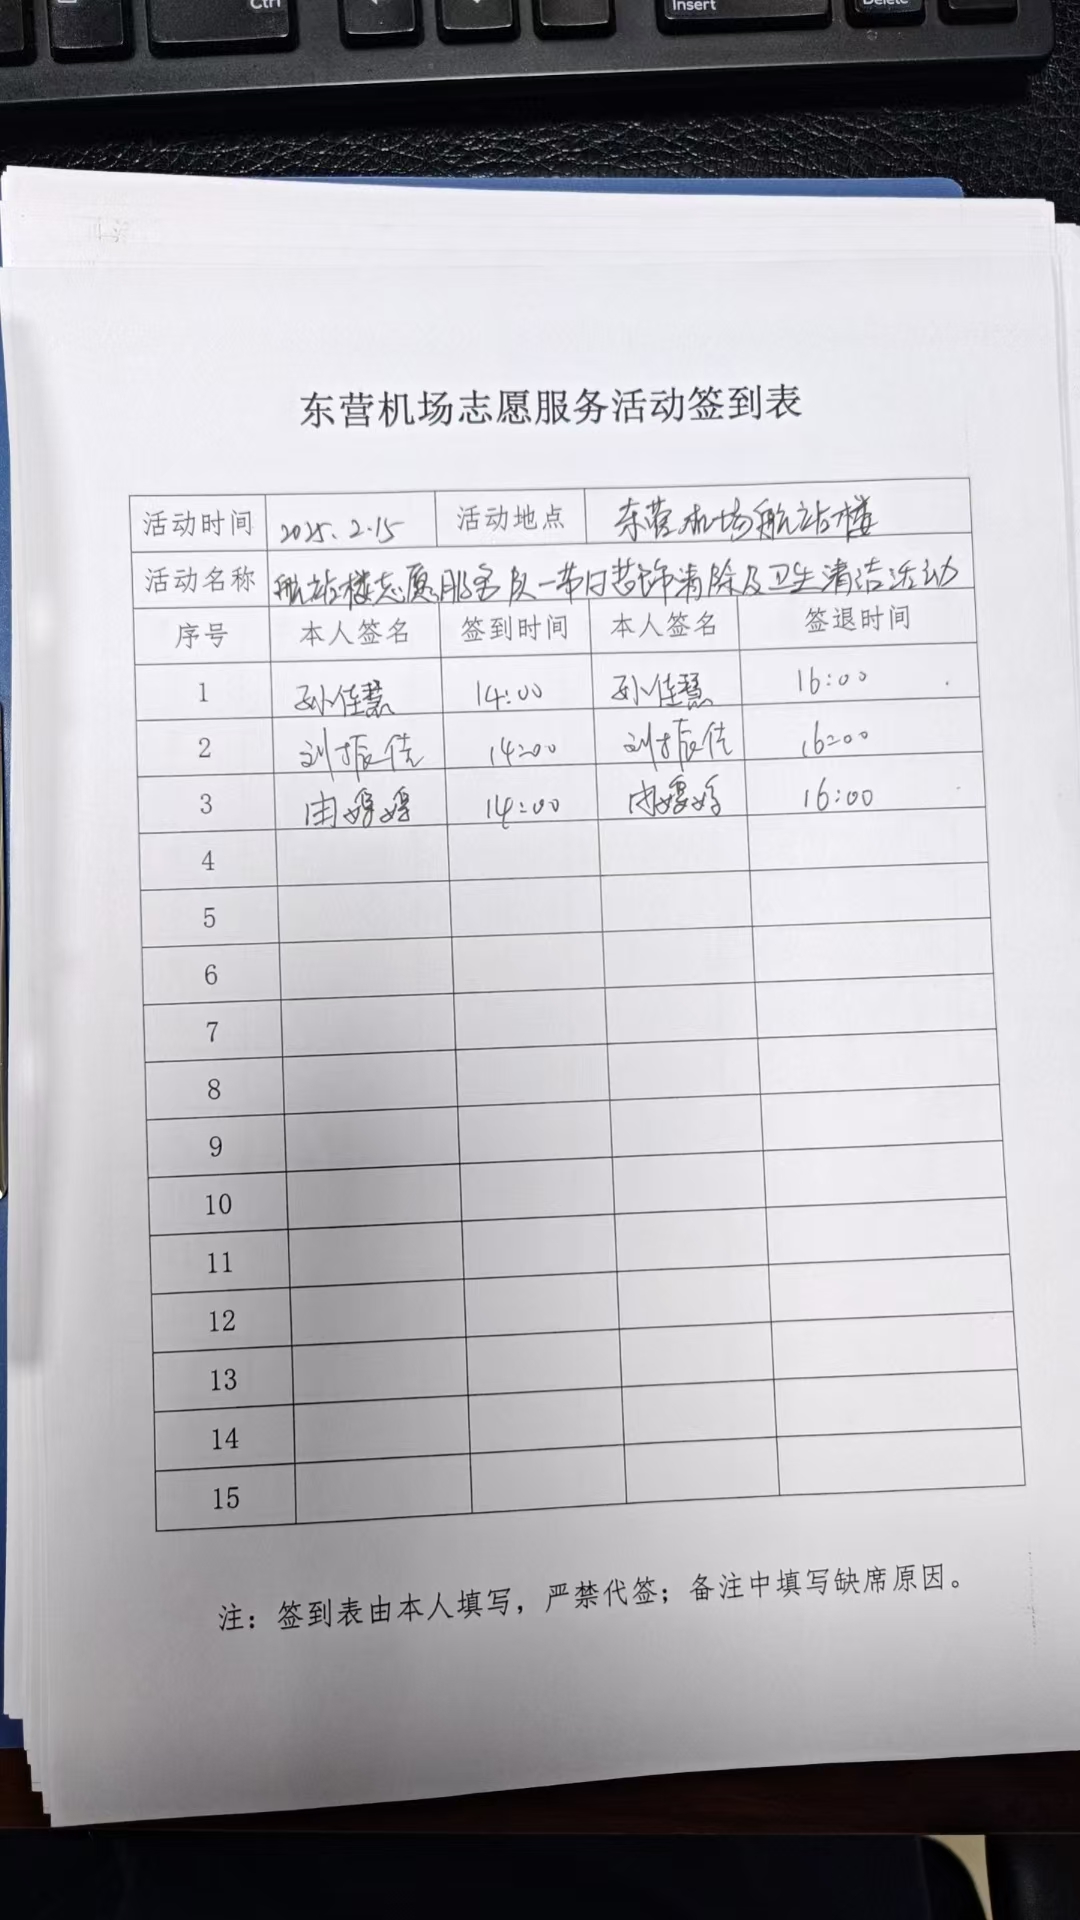 Ctrl
Insert
Delete
东营机场志愿服务活动签到表
活动时间 2025.2.15 活动地点 东营机场航站楼
活动名称 航站楼志愿服务队一节日装饰清除及卫生清洁活动
序号 本人签名 签到时间 本人签名 签退时间
1 孙佳慧 14:00 孙佳慧 16:00
2 刘振佳 14:00 刘振佳 16:00
3 14:00 16:00
4
5
6
7
8
9
10
11
12
13
14
15
注：签到表由本人填写，严禁代签；备注中填写缺席原因。